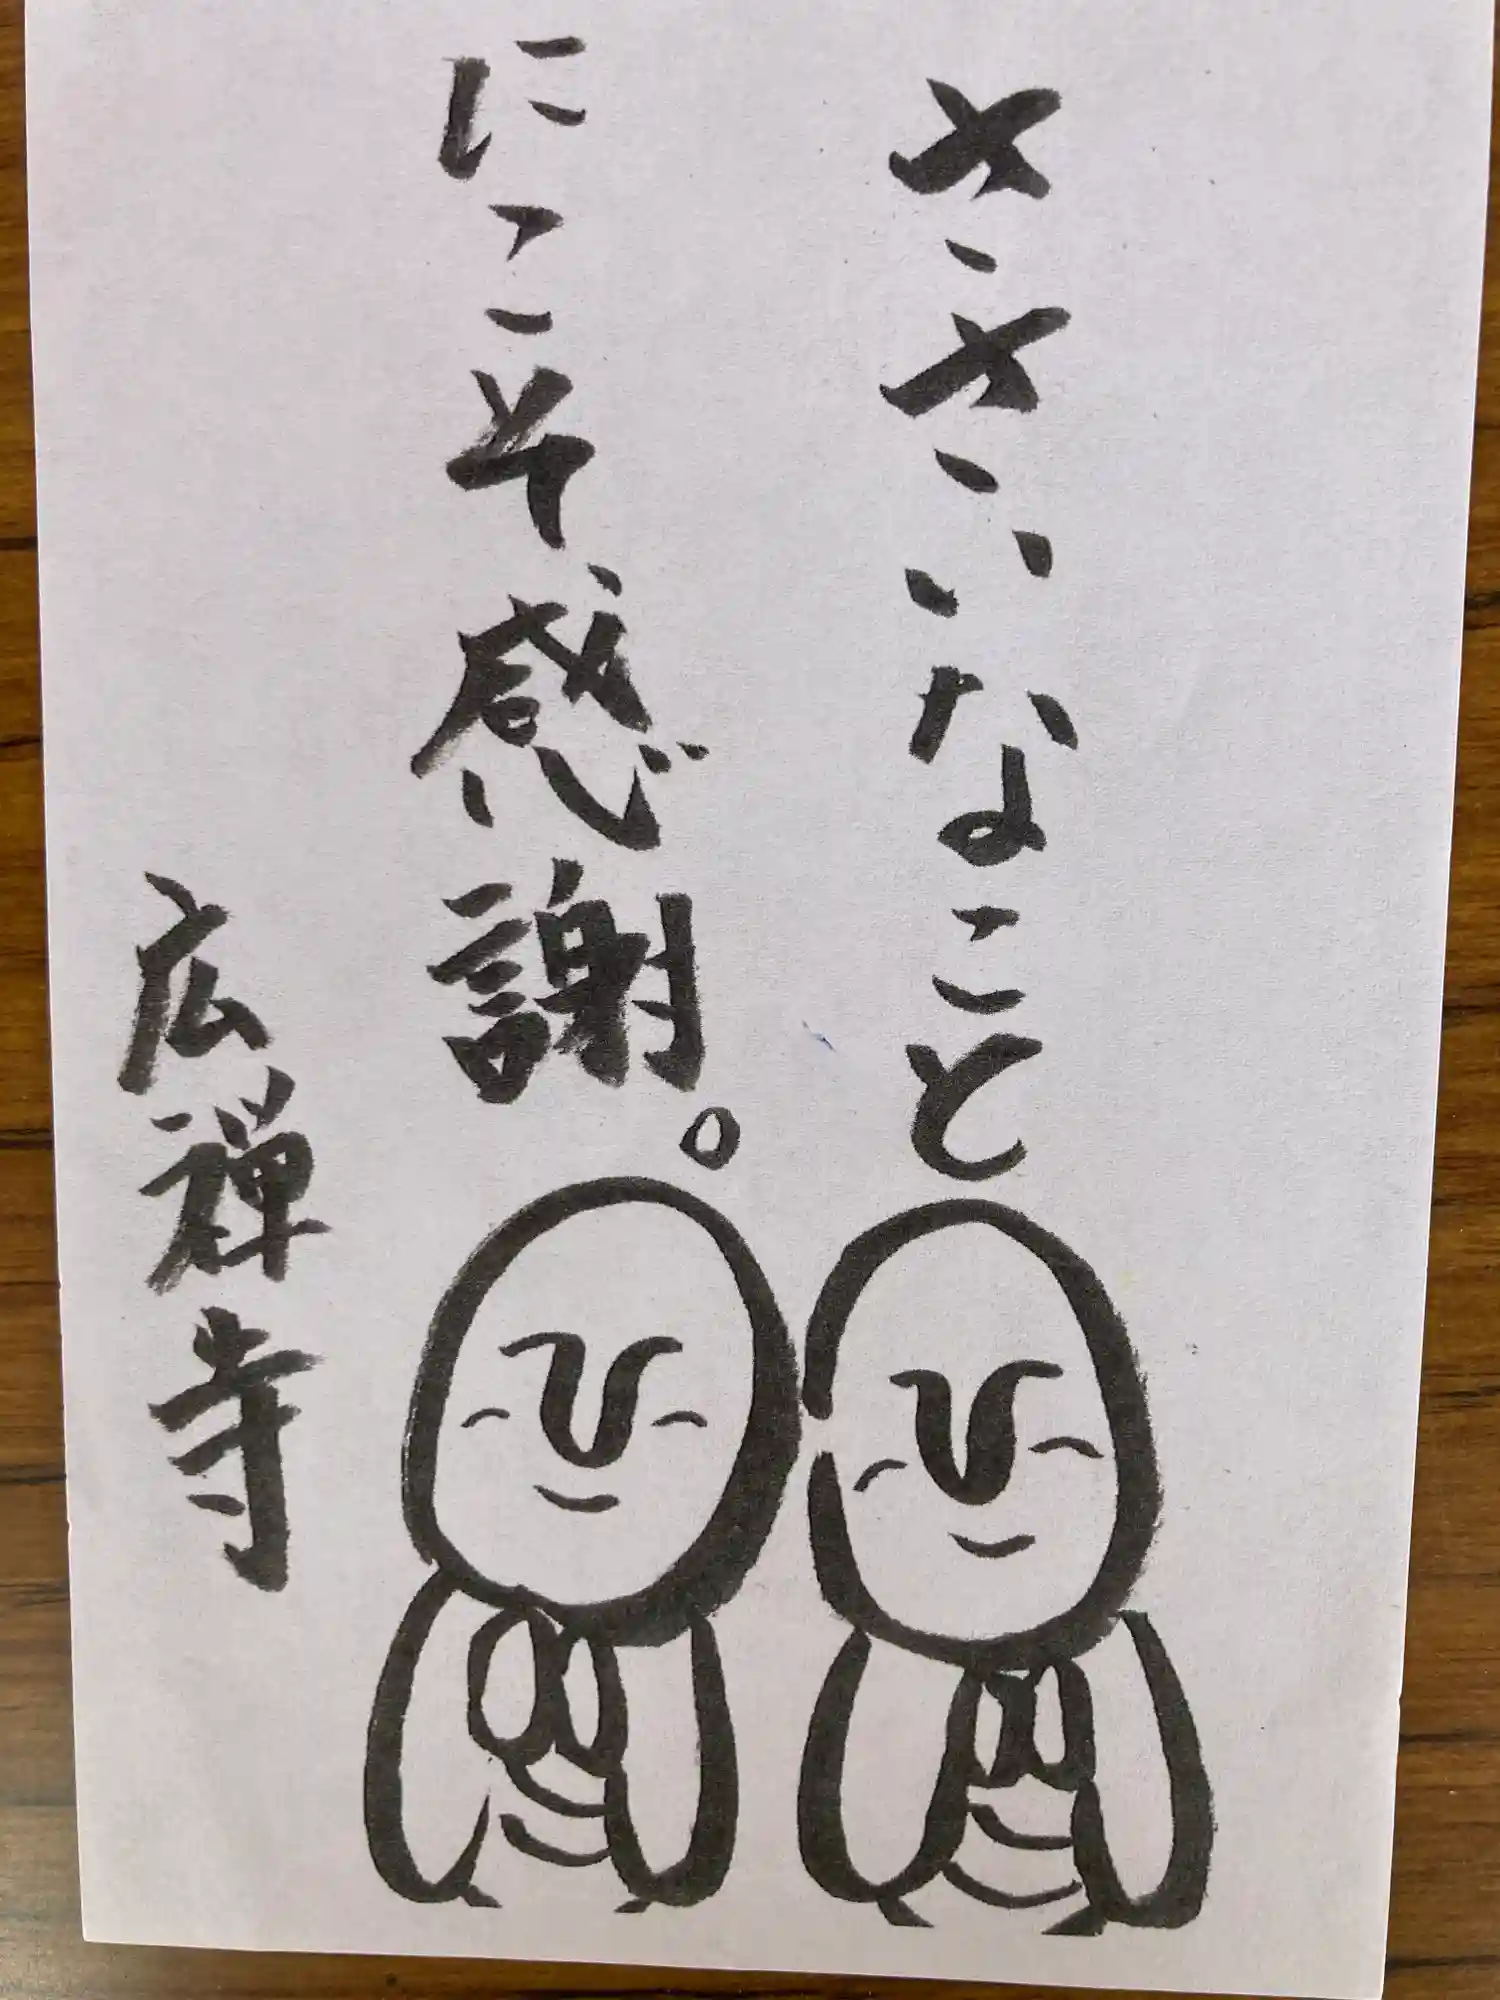 ささいなこと
にこそ感謝。
広禅寺